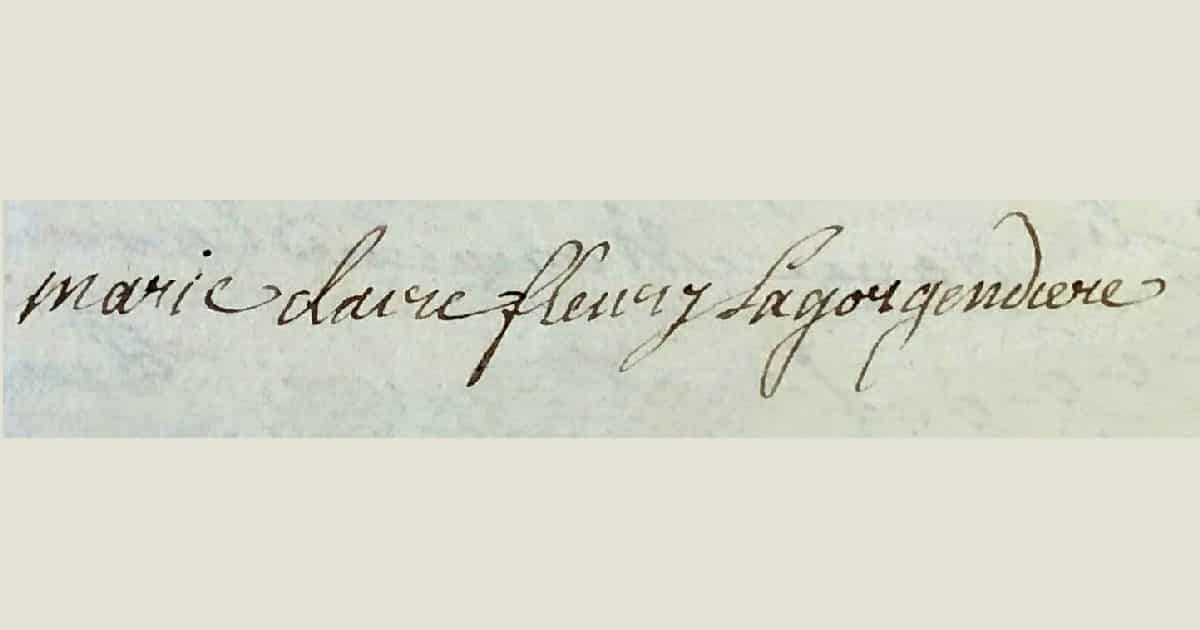 marie claire fleury Lagorgendiere